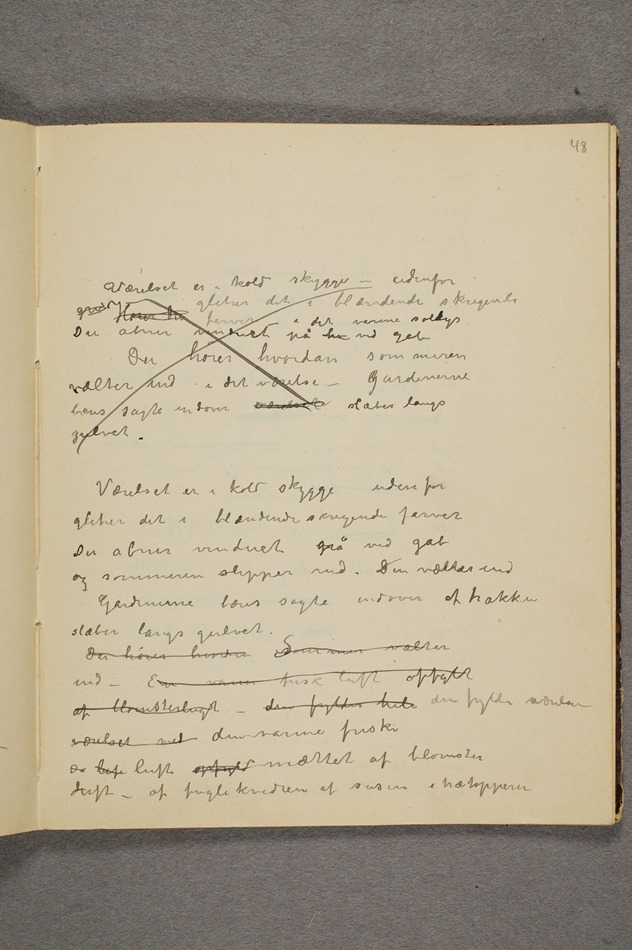 48
Værelset er i kold skygge – udenfor
glitrer det i blændende skrigende
farver i det varme sollys.
Du åbner vinduet på vid gab
Du hører hvordan sommeren
vælter ind i dit værelse – Gardinerne
bæres sagte indover værelset slæber langs
gulvet.
Værelset er i kold skygge udenfor
glitrer det i blændende skrigende farver
Du åbner vinduet på vid gab
og sommeren slipper ind. Den vælter ind
Gardinerne bæres sagte indover af trækken
slæber langs gulvet.
Du hører hvordan Sommer vælter
ind – En varm frisk luft opfyldt
af blomsterlugt – den fylder hele den fylder værelset
værelset med den varme friske
luft opfyldt mættet af blomster
duft – af fuglekvidren af susen i trætopperne